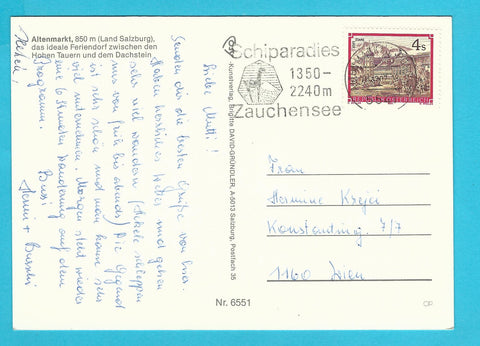 Altenmarkt, 850 m (Land Salzburg),
das ideale Feriendorf zwischen den
Hohen Tauern und dem Dachstein
Liebe Mutti!
Senden dir die besten Grüße von hier.
Haben herrliches Wetter und gehen
sehr viel wandern
uns von früh bis abends). Die Gegend
ist sehr schön und man kann sehr
viel unternehmen. Morgen steht wieder
eine 6 Stunden Wanderung auf dem
Programm.
Bussi
Kunstverlag, Brigitte DAVID-GRÜNDLER, A-5013 Salzburg, Postfach 35
Nr. 6551
Schiparadies
1350–
2240m
Zauchensee
4 S
REPUBLIK ÖSTERREICH
Frau
Hermine Krejci
Konstanting. 7/7
1160 Wien